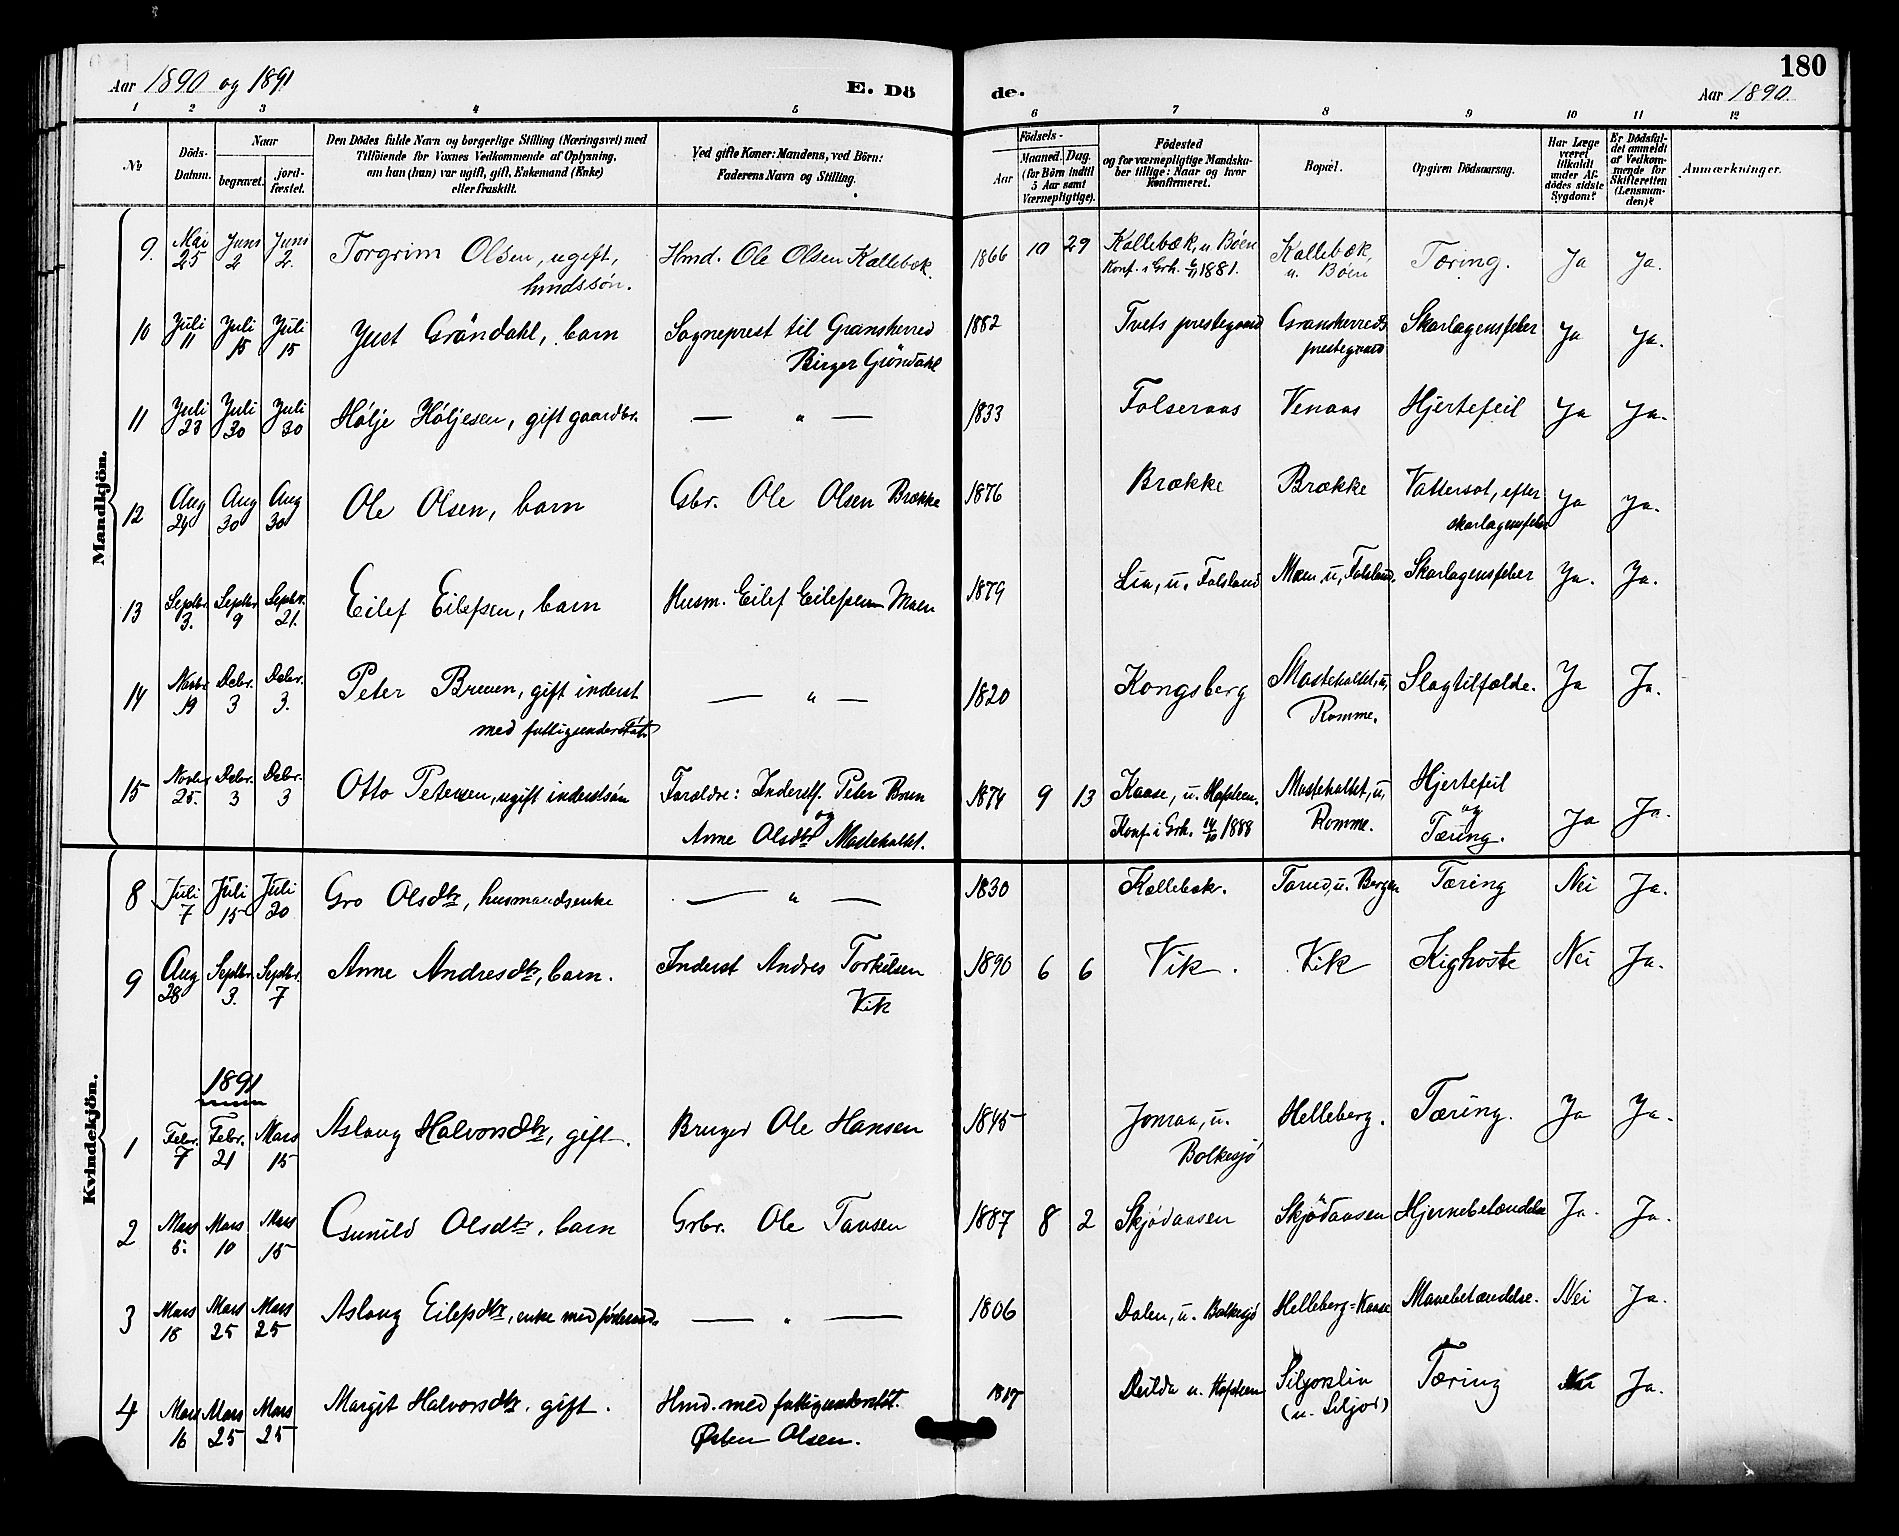 180
Aar 1890 og 1891
E. Dö de.
Aar 1890.
1 2 3 4 5 6 7 8 9 10 11 12
No
Döds-Datum.
Naar
begravet.
jordfæstet.
Den Dödes fulde Navn og borgerlige Stilling (Næringsvei) med
Tilföiende for Voxnes Vedkommende af Oplysning,
om han (hun) var ugift, gift, Enkemand (Enke)
eller fraskilt.
Ved gifte Koner: Mandens, ved Börn:
Faderens Navn og Stilling.
Födsels-
Aar
Maaned. Dag.
(for Börn indtil
5 Aar samt
Værnepligtige).
Födested
og for værnepligtige Mandska-
ber tillige: Naar og hvor
Konfirmeret.
Bopæl.
Opgiven Dödsaarsag.
Har Læge
været
tilkaldt
under Af-
dödes sidste
Sygdom?
Er Dödsfal-
det anmeldt
af Vedkom-
mende for
Skifteretten
(Lensman-
den)?
Anmærkninger.
Mandkjön.
9. Mai 25 Juni 2 Juni 2. Torgrim Olsen, ugift, Hmd. Ole Olsen Kallebæk. 1866 10 29 Kallebæk, u. Böen Kallebæk, Tæring. Ja Ja.
hmdssön. Konf. i Grh. 6/11 1881. u. Böen
10 Juli 11 Juli 15 Juli 15 Just Gröndahl, barn Sogneprest til Gransherred 1882 Tvets prestegaard Gransherreds Skarlagensfeber Ja Ja.
Birger Gröndahl prestegaard
11 Juli 23 Juli 30 Juli 30 Hölje Höljesen, gift gaardbr. — " — 1833 Folseraas Venaas Hjertefeil Ja Ja.
12 Aug 24 Aug 30 Aug 30 Ole Olsen, barn Gbr. Ole Olsen Brække 1876 Brække Brække Vattersot, efter Ja Ja.
skarlagensfeber
13 Septbr. 3. Septbr. 9 Septbr. 21. Eilef Eilefsen, barn Husm. Eilef Eilefsen Moen 1879 Lia, u. Folsland Moen u. Folsland. Skarlagensfeber Ja. Ja.
14 Novbr. 19 Debr. 3 Debr. 3. Peter Breuen, gift inderst — " — 1820 Kongsberg Masteholtet, u. Slagtilfælde. Ja Ja.
med fattigunderstöt. Romme.
15 Novbr. 25. Debr. 3 Debr. 3 Otto Petersen, ugift inderstsön Forældre: Inderstf. Peter Brun 1874 9 13 Kaase, u. Hofsteen. Masteholtet, u. Hjertefeil Ja Ja.
og
Anne Olsdtr Masteholtet. Konf. i Grh. 14/10 1888 Romme. og Tæring.
Kvindekjön.
8 Juli 7 Juli 15 Juli 20 Gro Olsdtr, husmandsenke — " — 1830 Kallebæk. Tarud, u. Bergan Tæring Nei Ja.
9 Aug 28 Septbr. 3. Septbr. 7 Anne Andresdtr, barn. Inderst Andres Torkilsen 1890 6 6 Vik. Vik Kighoste Nei Ja.
Vik
1891
1 Febr. 7 Febr. 21 Mars 15 Aslaug Halvorsdtr, gift. Bruger Ole Hansen 1845 Jonraa, u. Helleberg. Tæring. Ja Ja.
Bolkesjö
2 Mars 5. Mars 10 Mars 15 Gunild Olsdtr, barn Grbr. Ole Tansen 1887 8 2 Skjödaasen Skjödaasen Hjernebetændelse Ja. Ja.
3 Mars 18 Mars 25 Mars 25 Aslaug Eilefsdtr, enke med föderaad. — " — 1806 Dalen, u. Bolkesjö Helleberg=Kaase Mavebetændelse. Nei Ja.
4 Mars 16 Mars 25 Mars 25 Margit Halvorsdtr, gift. Hmd. med fattigunderstöt. 1817 Deilda u. Hofsteen Siljorslia Tæring Nei Ja.
Østen Olsen. (u. Siljor)